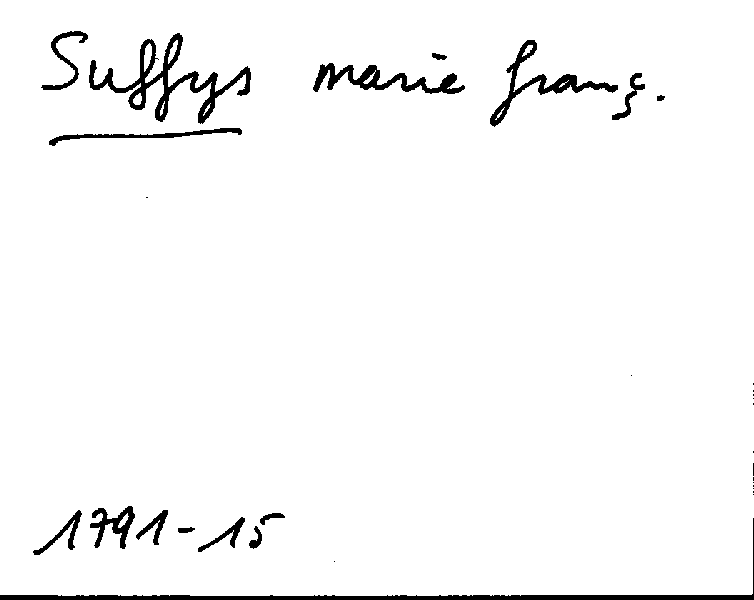 Suffys marie franç.
1791-15